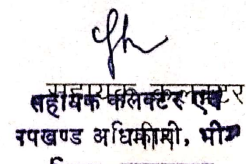 सहायक कलक्टर
सहायक कलक्टर एवं
उपखण्ड अधिकारी, भीम